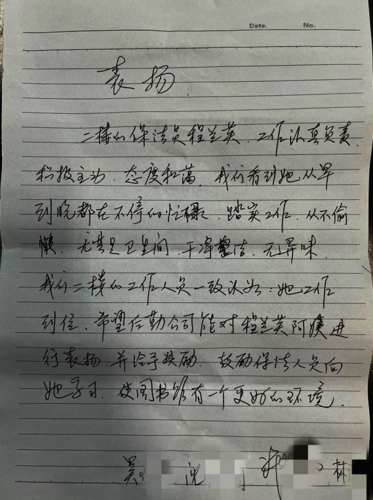 Date. No.
表扬
二楼的保洁员程兰英，工作认真负责，
积极主动，态度和蔼，我们看到她从早
到晚都在不停的忙碌，踏实工作，从不偷
懒，尤其是卫生间，干净整洁，无异味，
我们二楼的工作人员一致认为：她工作
到位，希望后勤公司能对程兰英阿姨进
行表扬，并给予奖励，鼓励保洁人员向
她学习，使图书馆有一个更好的环境。
吴 沈 许 林